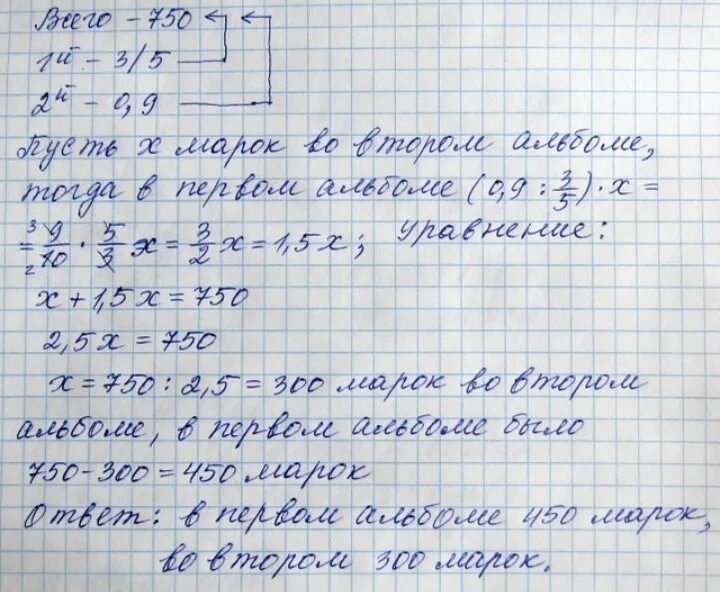 Всего – 750
1й – 3/5
2й – 0,9
Пусть x марок во втором альбоме,
тогда в первом альбоме (0,9 : 3/5) · x =
= 9/10 · 5/3 x = 3/2 x = 1,5x ; уравнение:
3 2
x + 1,5x = 750
2,5x = 750
x = 750 : 2,5 = 300 марок во втором
альбоме, в первом альбоме было
750 – 300 = 450 марок
Ответ: в первом альбоме 450 марок,
во втором 300 марок.